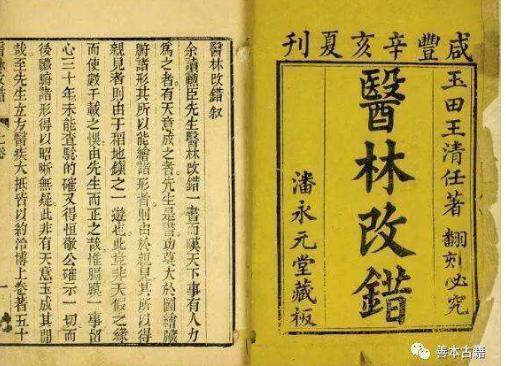 咸豐辛亥夏刊
玉田王清任著 翻刻必究
醫林改錯
潘永元堂藏板
醫林改錯叙
余讀勳臣先生醫林改錯一書而嘆天下事有人力
為之者有天意成之者先生是書功莫大於圖繪臟
腑諸形其所以能繪諸形者則由於親見其所以得
親見者則由于稻地鎮之一遊也此豈非天假之緣
而使數千載之悞由先生而正之哉惟膈膜一事留
心三十年未能查驗的確又得恒敬公確示一切而
後臟腑諸形得以昭晰無疑此非有天意玉成其間
哉至先生立方醫疾大抵皆以約治博上卷著五十
醫林改錯 上卷 一
善本古籍